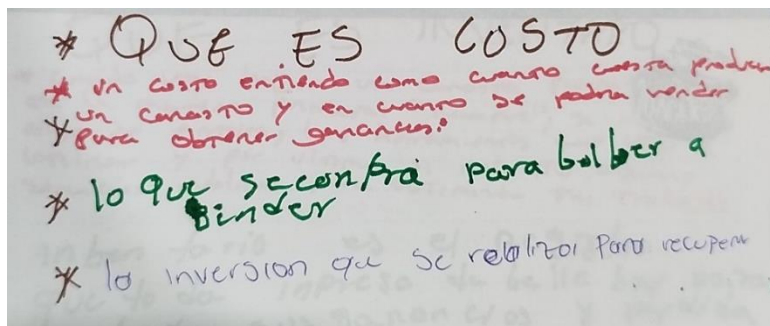 * QUE ES COSTO
* un costo entiendo como cuanto cuesta producir
* un canasto y en cuanto se podra vender
para obtener ganancias.
* lo que seconpra para bolber a
binder
* la inversion que se relalizo para recuperar